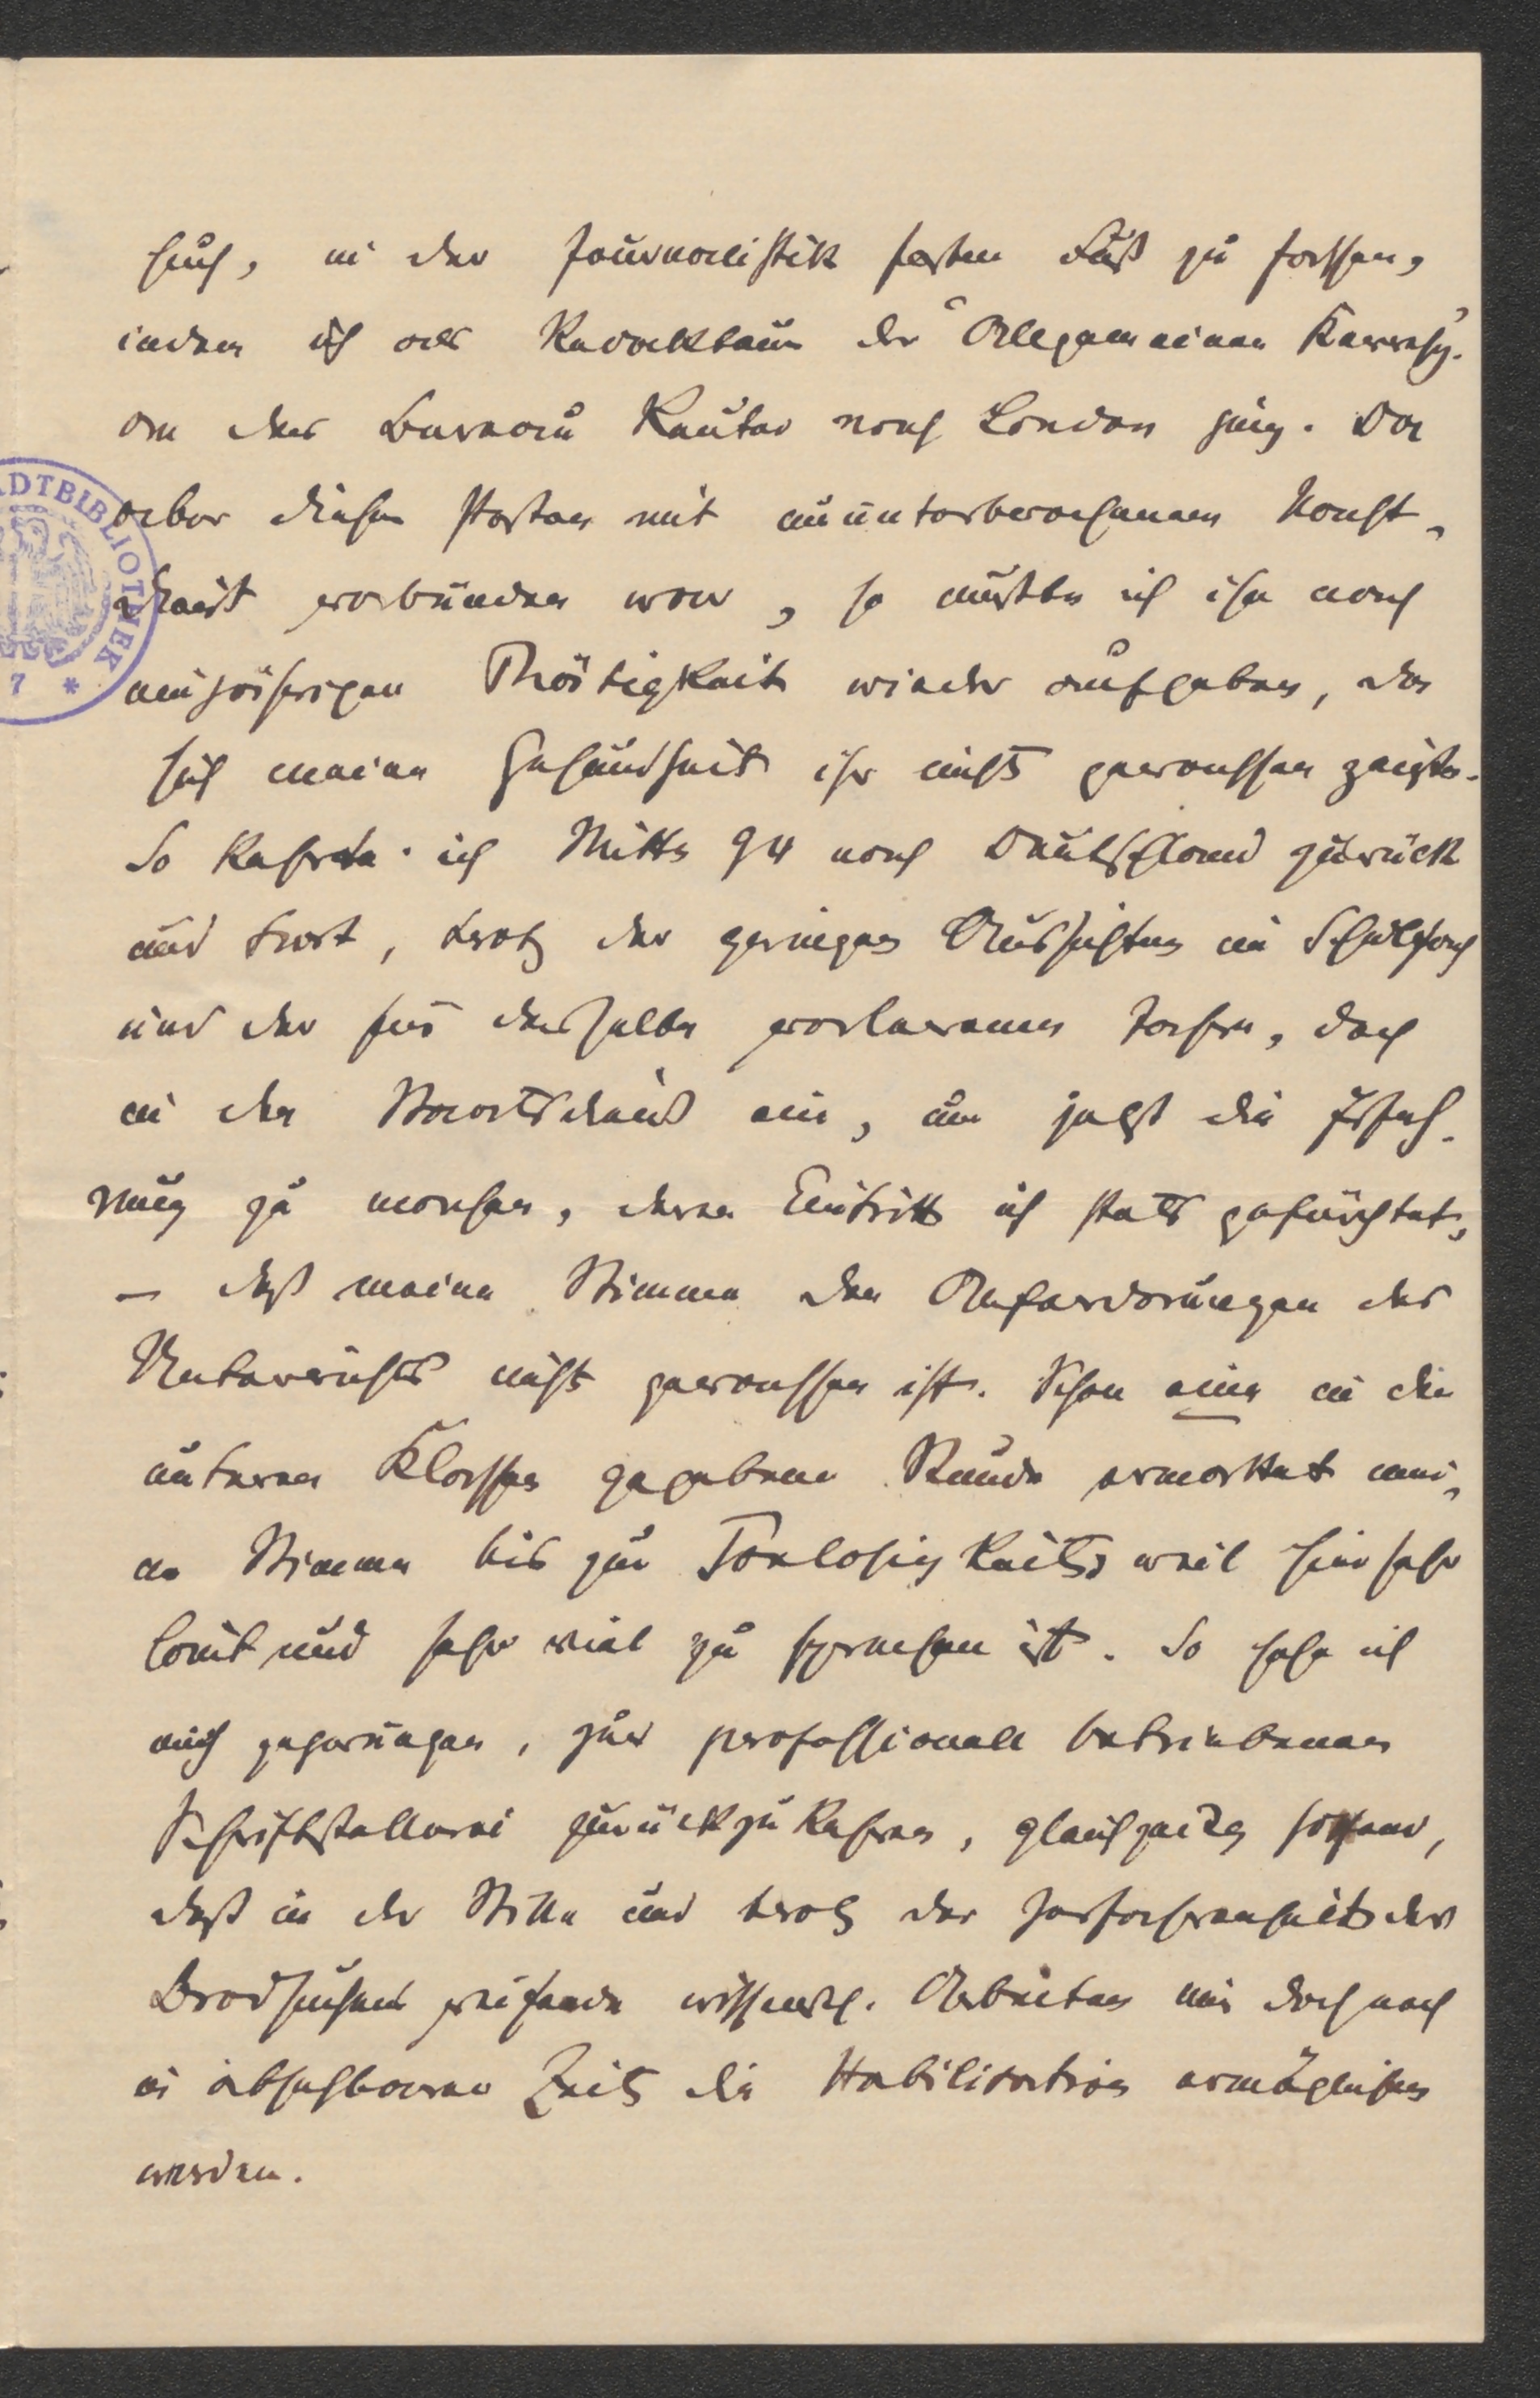 such, in der Journalistik festen Fuß zu fassen,
indem ich als Redakteur der "Allgemeinen Korresp."
an das Bureau Reuter nach London ging. Da
aber dieser Posten mit ununterbrochenem Nacht-
dienst verbunden war, so mußte ich ihn nach
einjähriger Thätigkeit wieder aufgeben, da
sich meine Gesundheit ihr nicht gewachsen zeigte.
So kehrte ich Mitte 94 nach Deutschland zurück
und trat, trotz der geringen Aussichten im Schulfach
und der für dasselbe verlorenen Jahre, doch
in den Staatsdienst ein, um jetzt die Erfah-
rung zu machen, deren Eintritt ich stets gefürchtet,
– daß meine Stimme den Anforderungen des
Unterrichts nicht gewachsen ist. Schon eine in den
unteren Klassen gegebene Stunde ermattet mei-
ne Stimme bis zur Tonlosigkeit, weil hier sehr
laut und sehr viel zu sprechen ist. So sehe ich
mich gezwungen, zur professionell betriebenen
Schriftstellerei zurückzukehren, gleichzeitig hoffend,
daß in der Stille und trotz der Zerfahrenheit des
Brodsuchens reifende wissensch. Arbeiten mir doch noch
in absehbarer Zeit die Habilitation ermöglichen
werden.
ADTBIBLIOTHEK
7 *